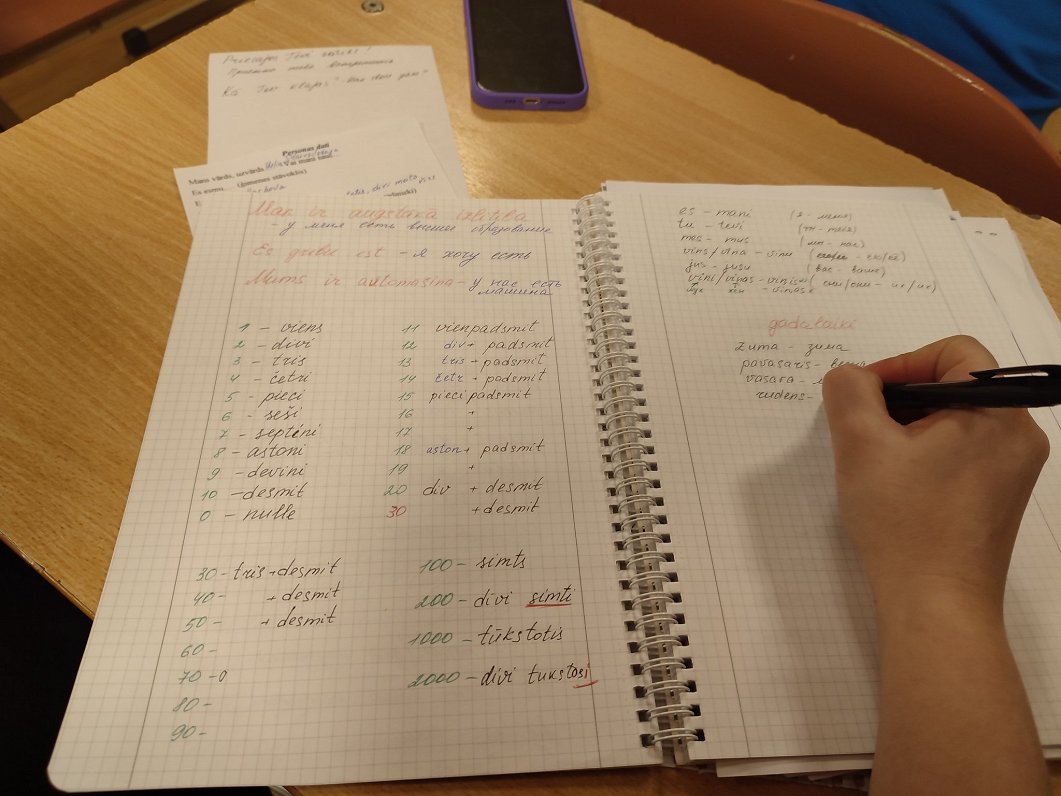 Priecājos Tevi
Приятно тебя
Ko Tev
Personas dati
Mans vārds, uzvārds
Es esmu (ģimenes stāvoklis)
Man ir augstākā izlītība
- у меня есть высшее образование
Es gribu ēst - я хочу есть
Mums ir automašina - у нас есть
машина
1 - viens
2 - divi
3 - trīs
4 - četri
5 - pieci
6 - seši
7 - septiņi
8 - astoņi
9 - deviņi
10 - desmit
0 - nulle
11 vienpadsmit
12 div + padsmit
13 trīs + padsmit
14 četr + padsmit
15 piecipadsmit
16 +
17 +
18 astoņ + padsmit
19 +
20 div + desmit
30 + desmit
30 - trīs + desmit
40 - + desmit
50 - + desmit
60 -
70 - 0
80 -
90 -
100 - simts
200 - divi simti
1000 - tūkstotis
2000 - divi tukstosi
es - mani (я - меня)
tu - tevi (ты - тебя)
mēs - mus (мы - нас)
viņš/viņa - viņu
jūs - jūsu (вас - ваше)
viņi/viņas - viņus (они/они - их/их)
- viņas
gadalaiki
ziema - зима
pavasaris -
vasara -
rudens -